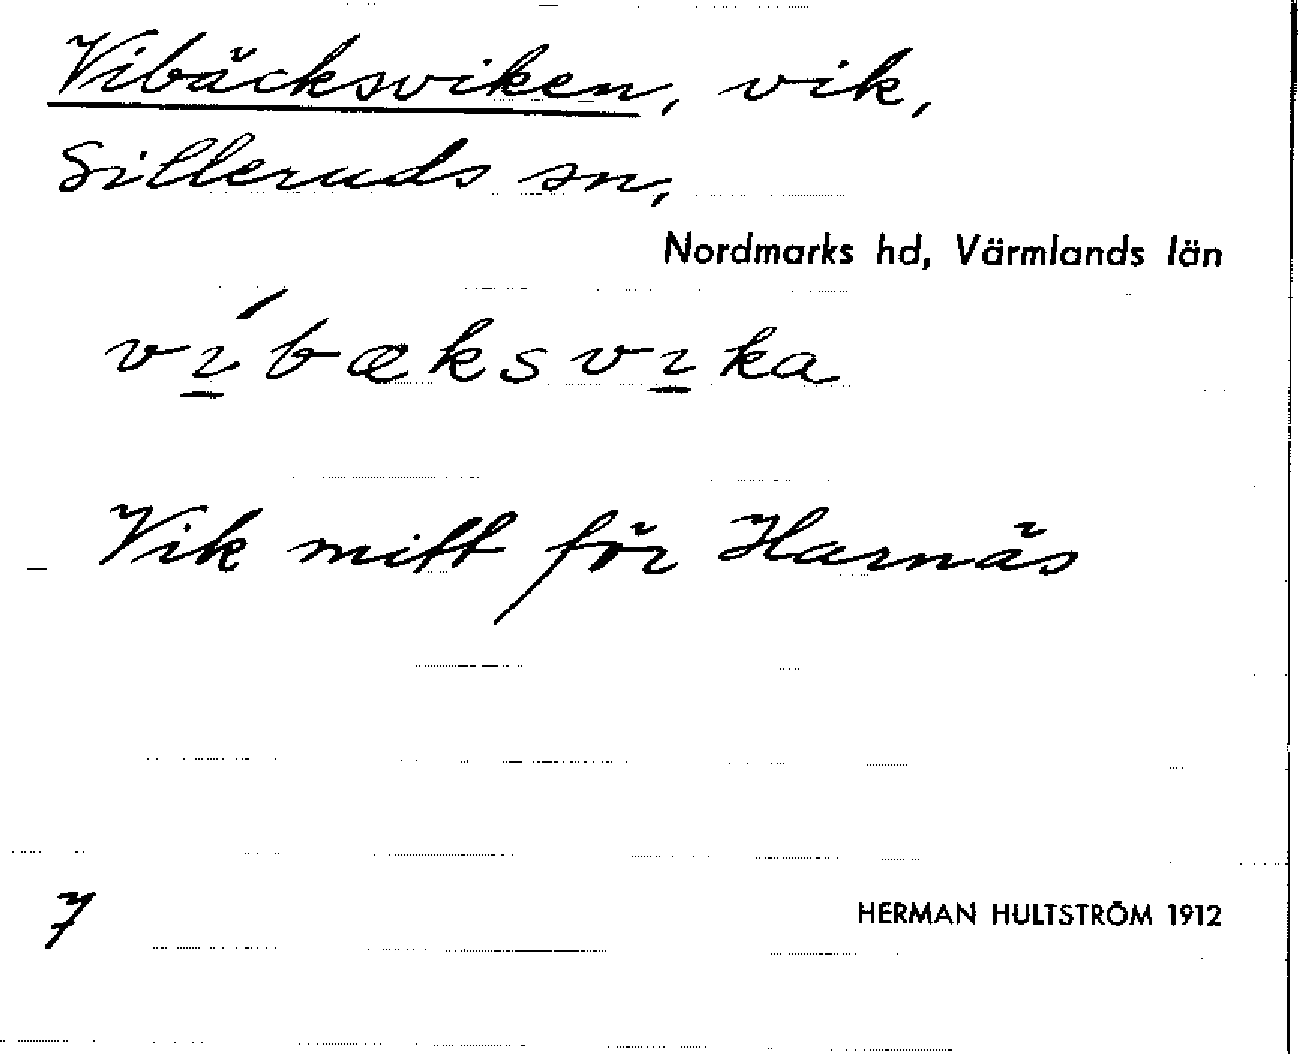 Vibäcksviken, vik,
Silleruds sn,
Nordmarks hd, Värmlands län
ví̲bæksvi̲ka
Vik mitt för Harnäs
7
HERMAN HULTSTRÖM 1912